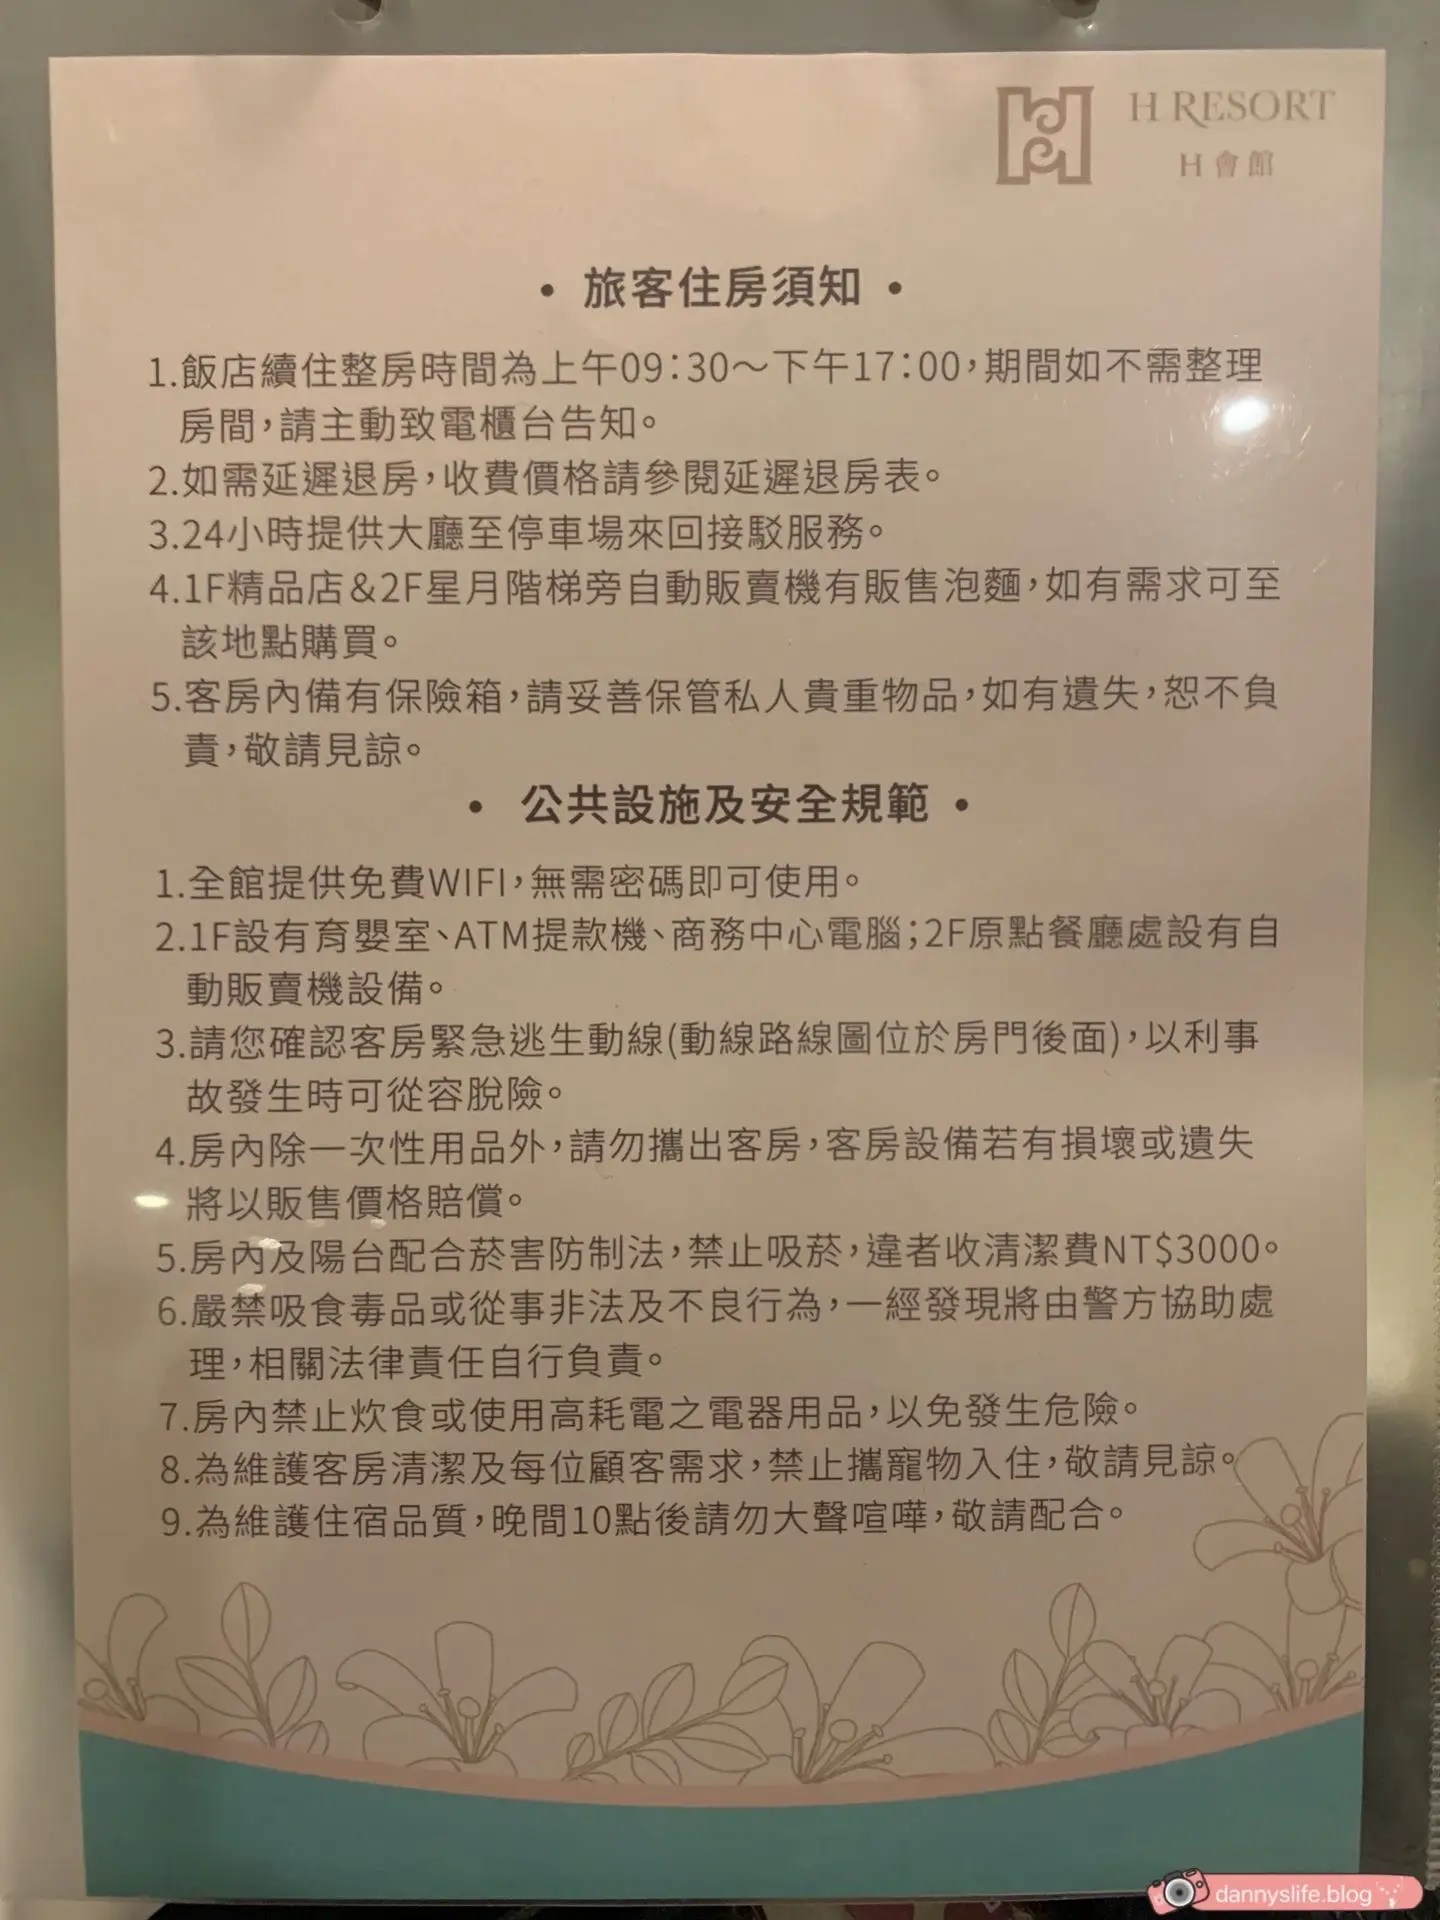 H RESORT
H 會館
• 旅客住房須知 •
1.飯店續住整房時間為上午09:30～下午17:00，期間如不需整理
房間，請主動致電櫃台告知。
2.如需延遲退房，收費價格請參閱延遲退房表。
3.24小時提供大廳至停車場來回接駁服務。
4.1F精品店&2F星月階梯旁自動販賣機有販售泡麵，如有需求可至
該地點購買。
5.客房內備有保險箱，請妥善保管私人貴重物品，如有遺失，恕不負
責，敬請見諒。
• 公共設施及安全規範 •
1.全館提供免費WIFI，無需密碼即可使用。
2.1F設有育嬰室、ATM提款機、商務中心電腦；2F原點餐廳處設有自
動販賣機設備。
3.請您確認客房緊急逃生動線(動線路線圖位於房門後面)，以利事
故發生時可從容脫險。
4.房內除一次性用品外，請勿攜出客房，客房設備若有損壞或遺失
將以販售價格賠償。
5.房內及陽台配合菸害防制法，禁止吸菸，違者收清潔費NT$3000。
6.嚴禁吸食毒品或從事非法及不良行為，一經發現將由警方協助處
理，相關法律責任自行負責。
7.房內禁止炊食或使用高耗電之電器用品，以免發生危險。
8.為維護客房清潔及每位顧客需求，禁止攜寵物入住，敬請見諒。
9.為維護住宿品質，晚間10點後請勿大聲喧嘩，敬請配合。
dannyslife.blog